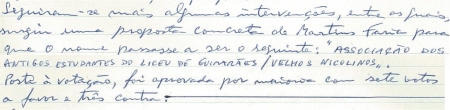 Seguiram-se mais algumas intervenções, entre as quais,
surgiu uma proposta concreta de Martins Faria para
que o nome passasse a ser o seguinte: "ASSOCIAÇÃO DOS
ANTIGOS ESTUDANTES DO LICEU DE GUIMARÃES / VELHOS NICOLINOS".
Posta à votação, foi aprovada por maioria com sete votos
a favor e três contra.